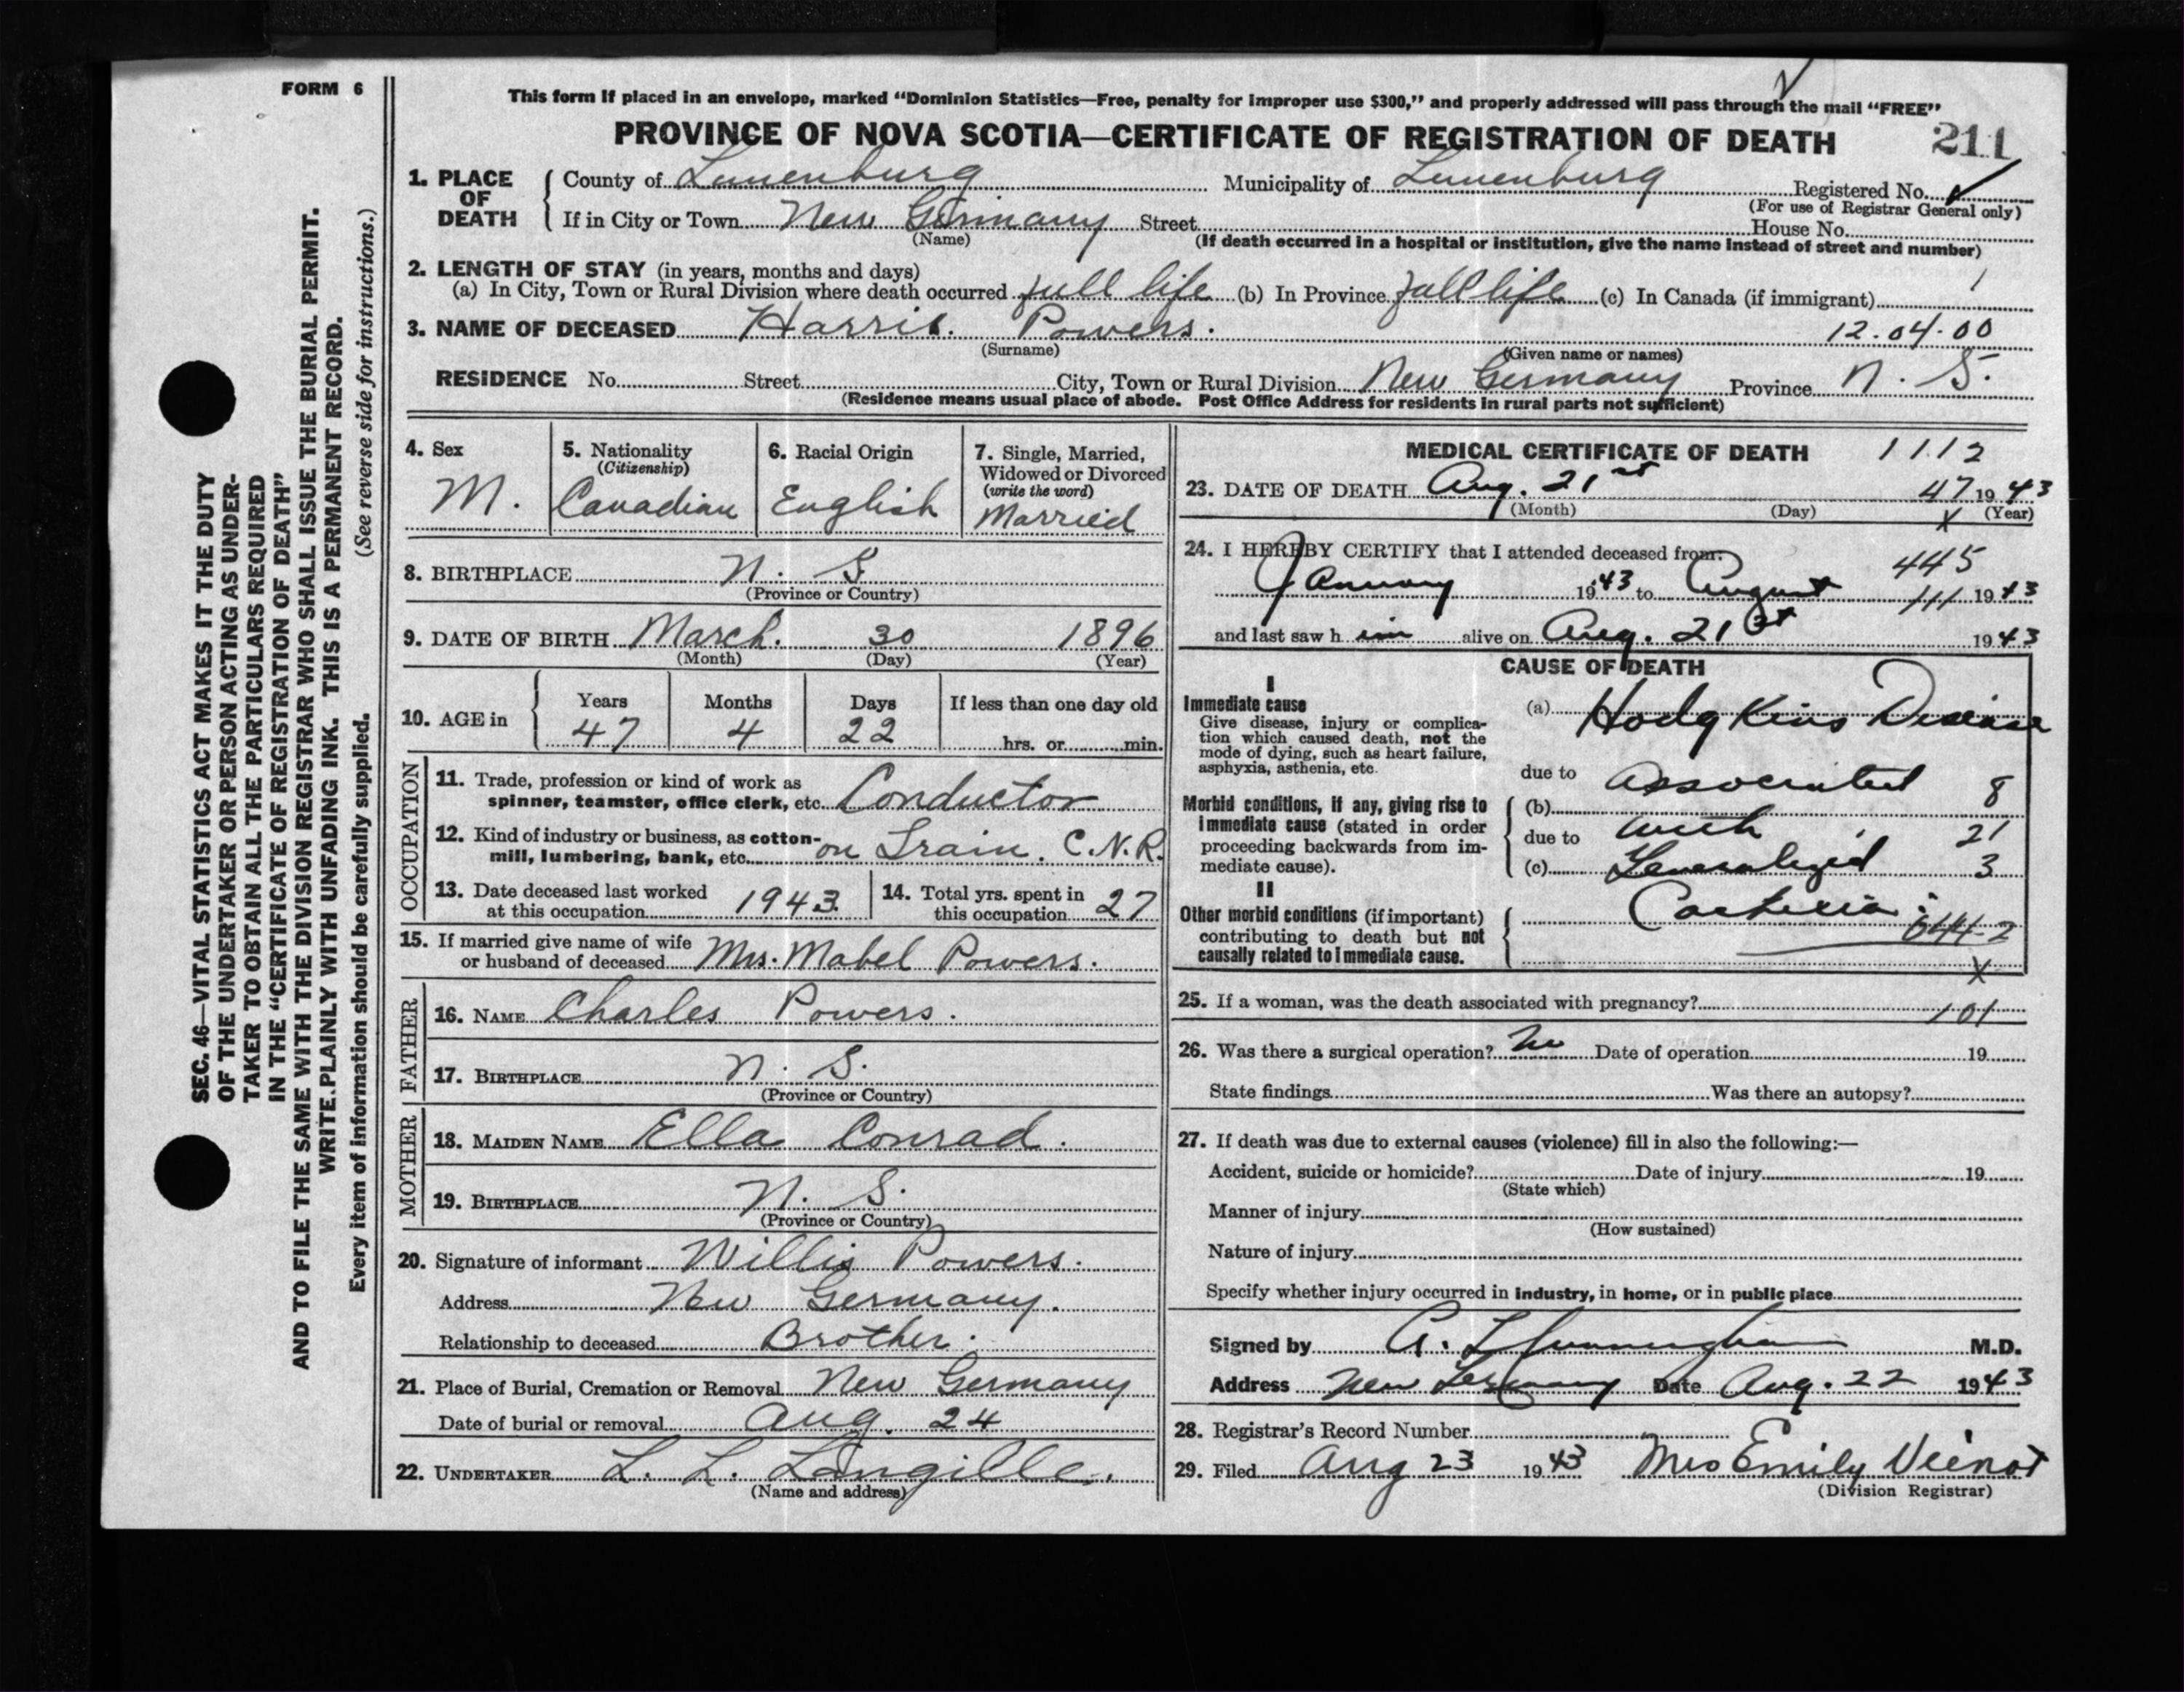 FORM 6
This form if placed in an envelope, marked “Dominion Statistics—Free, penalty for improper use $300,” and properly addressed will pass through the mail “FREE”
PROVINCE OF NOVA SCOTIA—CERTIFICATE OF REGISTRATION OF DEATH 211
1. PLACE OF DEATH County of Lunenburg Municipality of Lunenburg Registered No. ✓
(For use of Registrar General only)
If in City or Town New Germany Street House No.
(Name) (If death occurred in a hospital or institution, give the name instead of street and number)
2. LENGTH OF STAY (in years, months and days)
(a) In City, Town or Rural Division where death occurred full life (b) In Province full life (c) In Canada (if immigrant)
3. NAME OF DECEASED Harris. Powers. 12.04.00
(Surname) (Given name or names)
RESIDENCE No. Street City, Town or Rural Division New Germany Province N. S.
(Residence means usual place of abode. Post Office Address for residents in rural parts not sufficient)
4. Sex M.
5. Nationality (Citizenship) Canadian
6. Racial Origin English
7. Single, Married, Widowed or Divorced (write the word) Married
8. BIRTHPLACE N. S.
(Province or Country)
9. DATE OF BIRTH March. 30 1896
(Month) (Day) (Year)
10. AGE in Years 47 Months 4 Days 22 If less than one day old hrs. or min.
OCCUPATION
11. Trade, profession or kind of work as
spinner, teamster, office clerk, etc. Conductor
12. Kind of industry or business, as cotton-
mill, lumbering, bank, etc. on Train. C.N.R.
13. Date deceased last worked
at this occupation 1943.
14. Total yrs. spent in
this occupation 27
15. If married give name of wife
or husband of deceased Mrs. Mabel Powers.
FATHER
16. NAME Charles Powers.
17. BIRTHPLACE N. S.
(Province or Country)
MOTHER
18. MAIDEN NAME Ella Conrad.
19. BIRTHPLACE N. S.
(Province or Country)
20. Signature of informant Willis Powers.
Address New Germany.
Relationship to deceased Brother.
21. Place of Burial, Cremation or Removal New Germany
Date of burial or removal Aug. 24
22. UNDERTAKER L. L. Langille.
(Name and address)
MEDICAL CERTIFICATE OF DEATH 1112
23. DATE OF DEATH Aug. 21st 47 1943
(Month) (Day) (Year)
X
24. I HEREBY CERTIFY that I attended deceased from: 445
January 1943 to August 111 1943
and last saw h im alive on Aug. 21st 1943
CAUSE OF DEATH
I
Immediate cause
Give disease, injury or complica-
tion which caused death, not the
mode of dying, such as heart failure,
asphyxia, asthenia, etc.
(a) Hodgkins Disease
due to associated 8
Morbid conditions, if any, giving rise to
immediate cause (stated in order
proceeding backwards from im-
mediate cause).
(b)
due to with 21
(c) Generalized 3
II
Other morbid conditions (if important)
contributing to death but not
causally related to immediate cause.
Cachexia.
X
25. If a woman, was the death associated with pregnancy? 101
26. Was there a surgical operation? No Date of operation 19
State findings Was there an autopsy?
27. If death was due to external causes (violence) fill in also the following:—
Accident, suicide or homicide? Date of injury 19
(State which)
Manner of injury
(How sustained)
Nature of injury
Specify whether injury occurred in industry, in home, or in public place
Signed by Cunningham M.D.
Address New Germany Date Aug. 22 1943
28. Registrar's Record Number
29. Filed Aug 23 1943 Mrs Emily Veinot
(Division Registrar)
SEC. 46—VITAL STATISTICS ACT MAKES IT THE DUTY
OF THE UNDERTAKER OR PERSON ACTING AS UNDER-
TAKER TO OBTAIN ALL THE PARTICULARS REQUIRED
IN THE “CERTIFICATE OF REGISTRATION OF DEATH”
AND TO FILE THE SAME WITH THE DIVISION REGISTRAR WHO SHALL ISSUE THE BURIAL PERMIT.
WRITE PLAINLY WITH UNFADING INK. THIS IS A PERMANENT RECORD.
Every item of information should be carefully supplied. (See reverse side for instructions.)